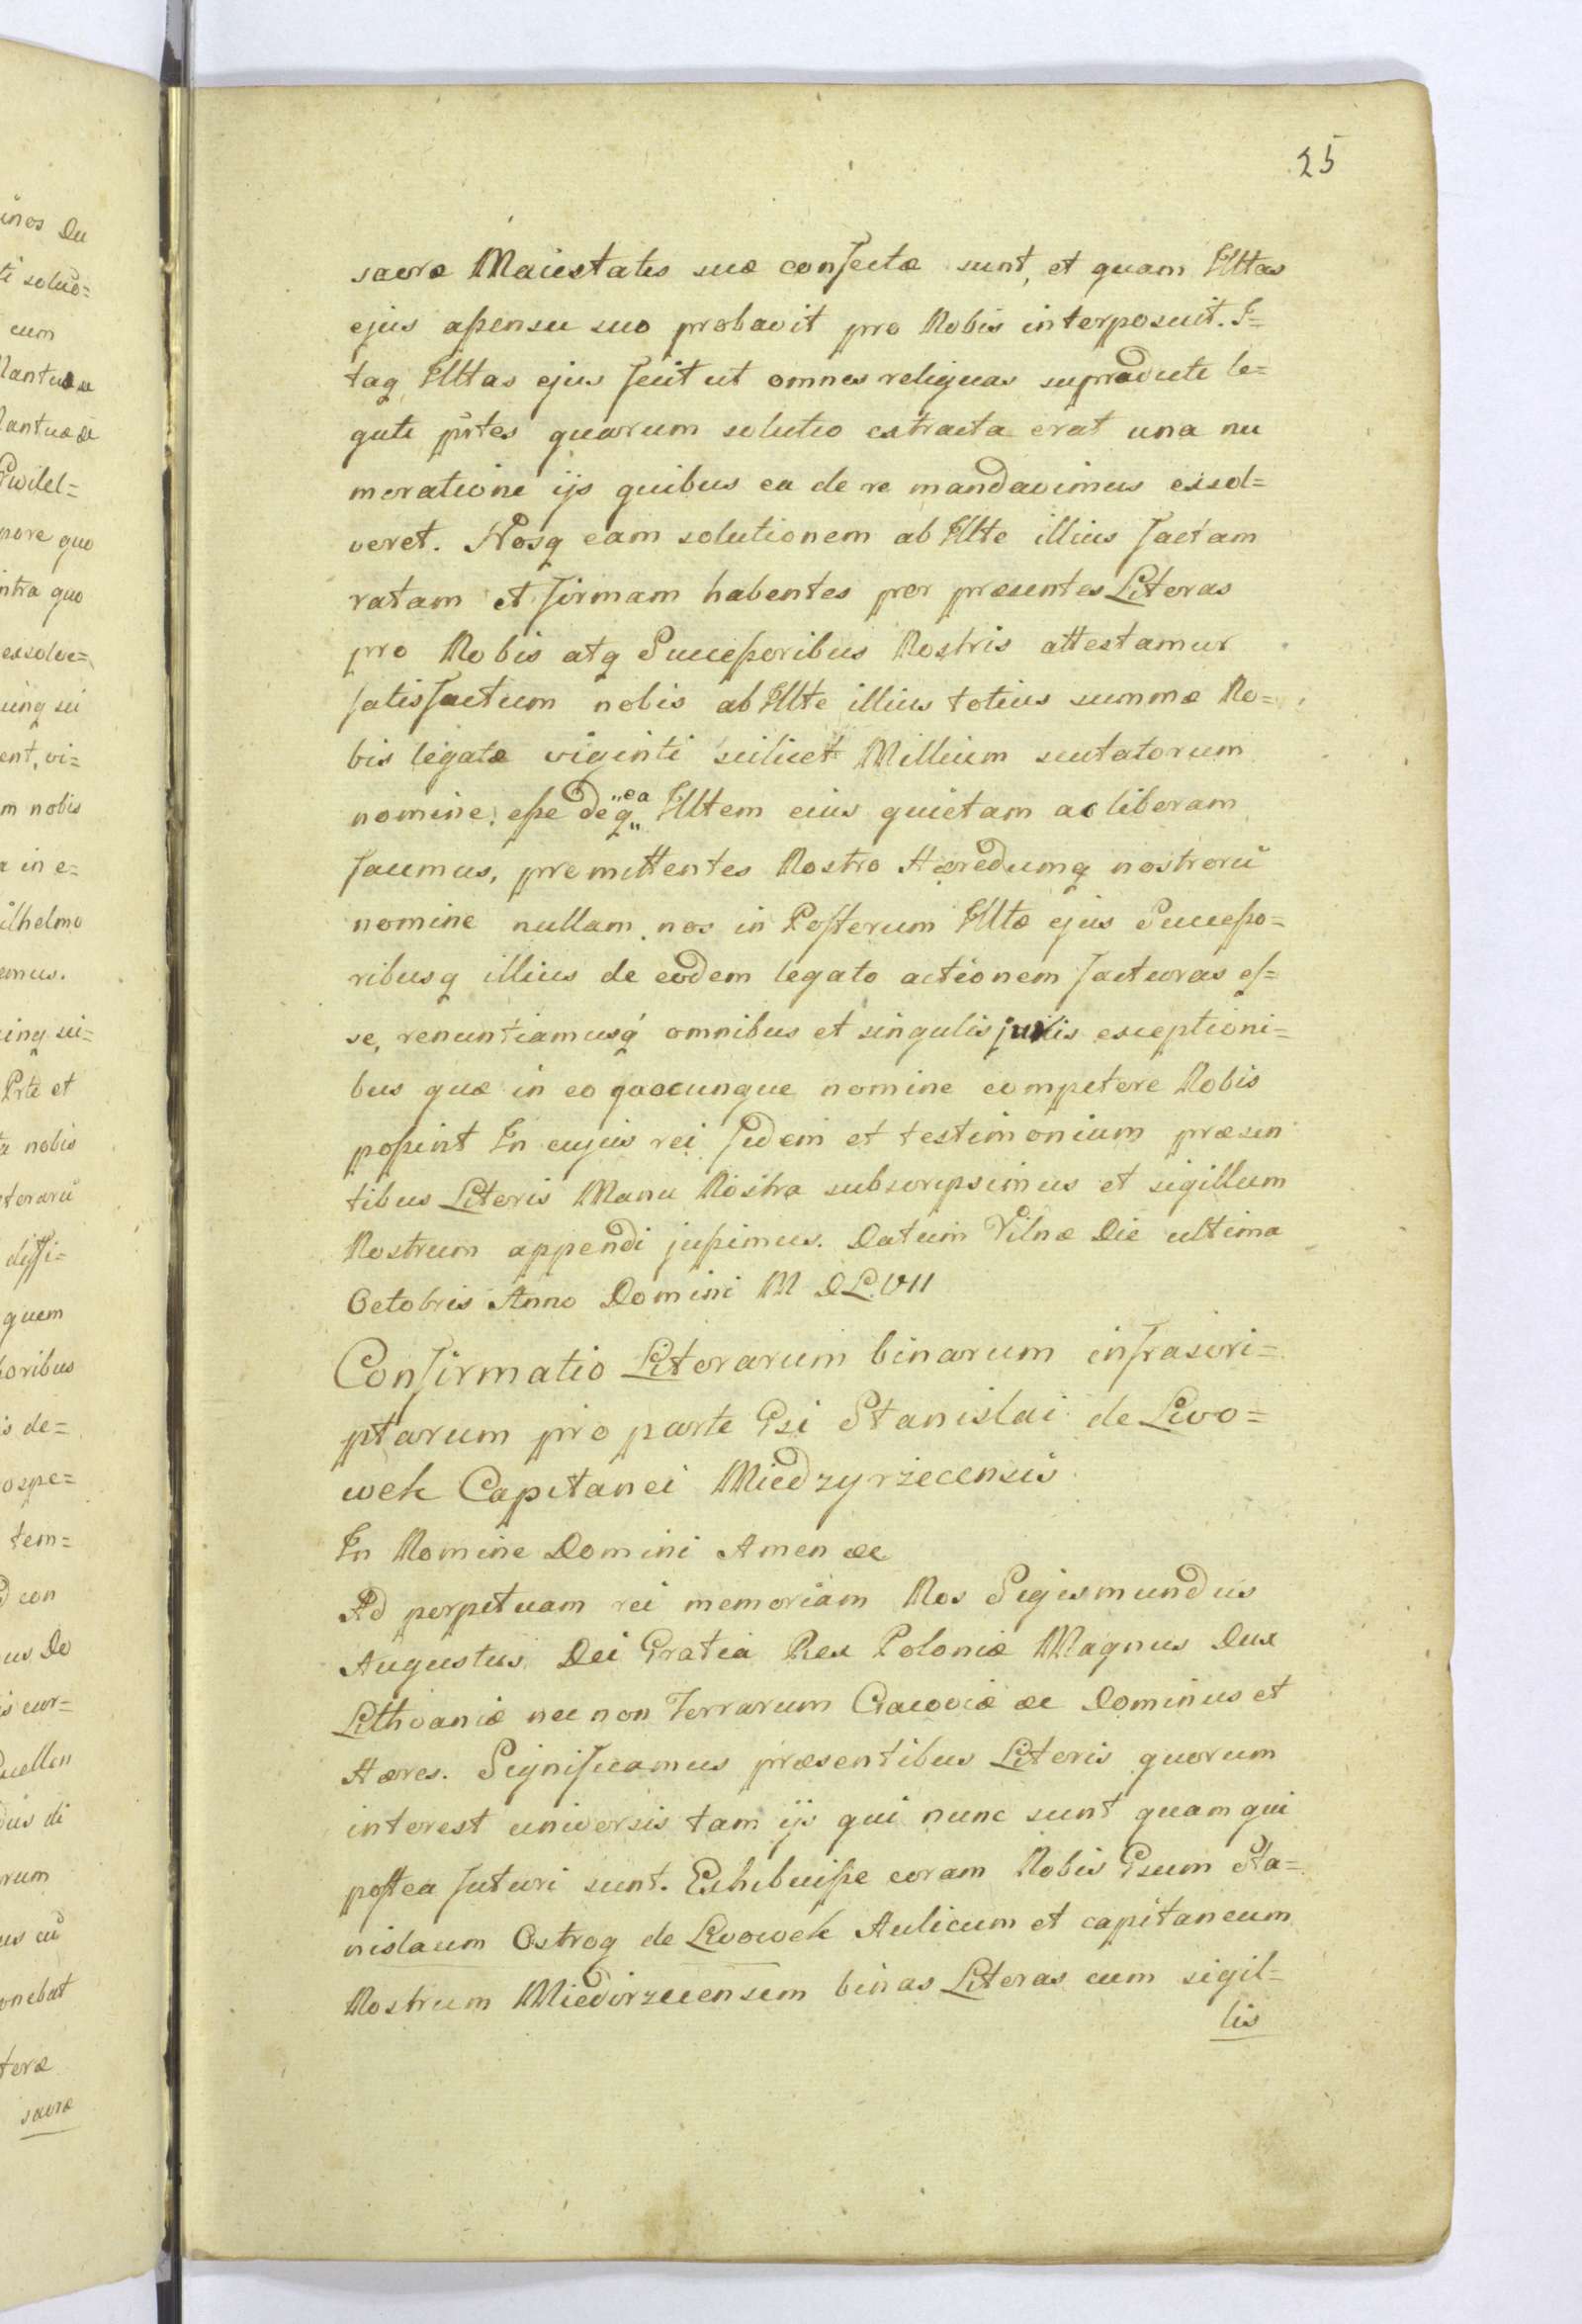 25
sacræ Maiestatis suæ confectæ sunt, et quam Illtas
ejus aßensu suo probavit pro Nobis interposuit. I=
taq Illtas ejus fecit ut omnes reliquas supradicti le=
gati pñtes quarum solutio extracta erat una nu
meratione ijs quibus ea de re mandavimus exsol=
veret. Nosq eam solutionem ab Illte illius factam
ratam et firmam habentes per præsentes Literas
pro Nobis atq Succeßoribus Nostris attestamur
satisfactum nobis ab Illte illius totius summæ No=
bis legatæ viginti scilicet Millium scutatorum
nomine, eße deq "ea Illtem eius quietam ac liberam
facimus, promittentes Nostro Hæredumq nostrorū
nomine nullam nos in Posterum Illtæ ejus Succeßo=
ribusq illius de eodem legato actionem facturas es=
se, renuntiamusq omnibus et singulis juris exceptioni=
bus quæ in eo quocunque nomine competere Nobis
poßint In cujus rei fidem et testimonium præsen
tibus Literis Manu Nostra subscripsimus et sigillum
Nostrum appendi jußimus. Datum Vilnæ Die ultima
Octobris Anno Domini M DL.VII
Confirmatio Literarum binarum infrascri=
ptarum pro parte Gsi Stanislai de Livo=
wek Capitanei Miedzyrzecensis
In Nomine Domini Amen &c
Ad perpetuam rei memoriam Nos Sigismundus
Augustus Dei Gratia Rex Poloniæ Magnus Dux
Lithvaniæ nec non Terrarum Cracoviæ &c Dominus et
Hæres. Significamus præsentibus Literis quorum
interest universis tam ijs qui nunc sunt quam qui
postea futuri sunt. Exhibuiße coram Nobis Gsum Sta=
nislaum Ostrog de Lwowek Aulicum et capitaneum
Nostrum Miedirzecensem binas Literas cum sigil=
lis